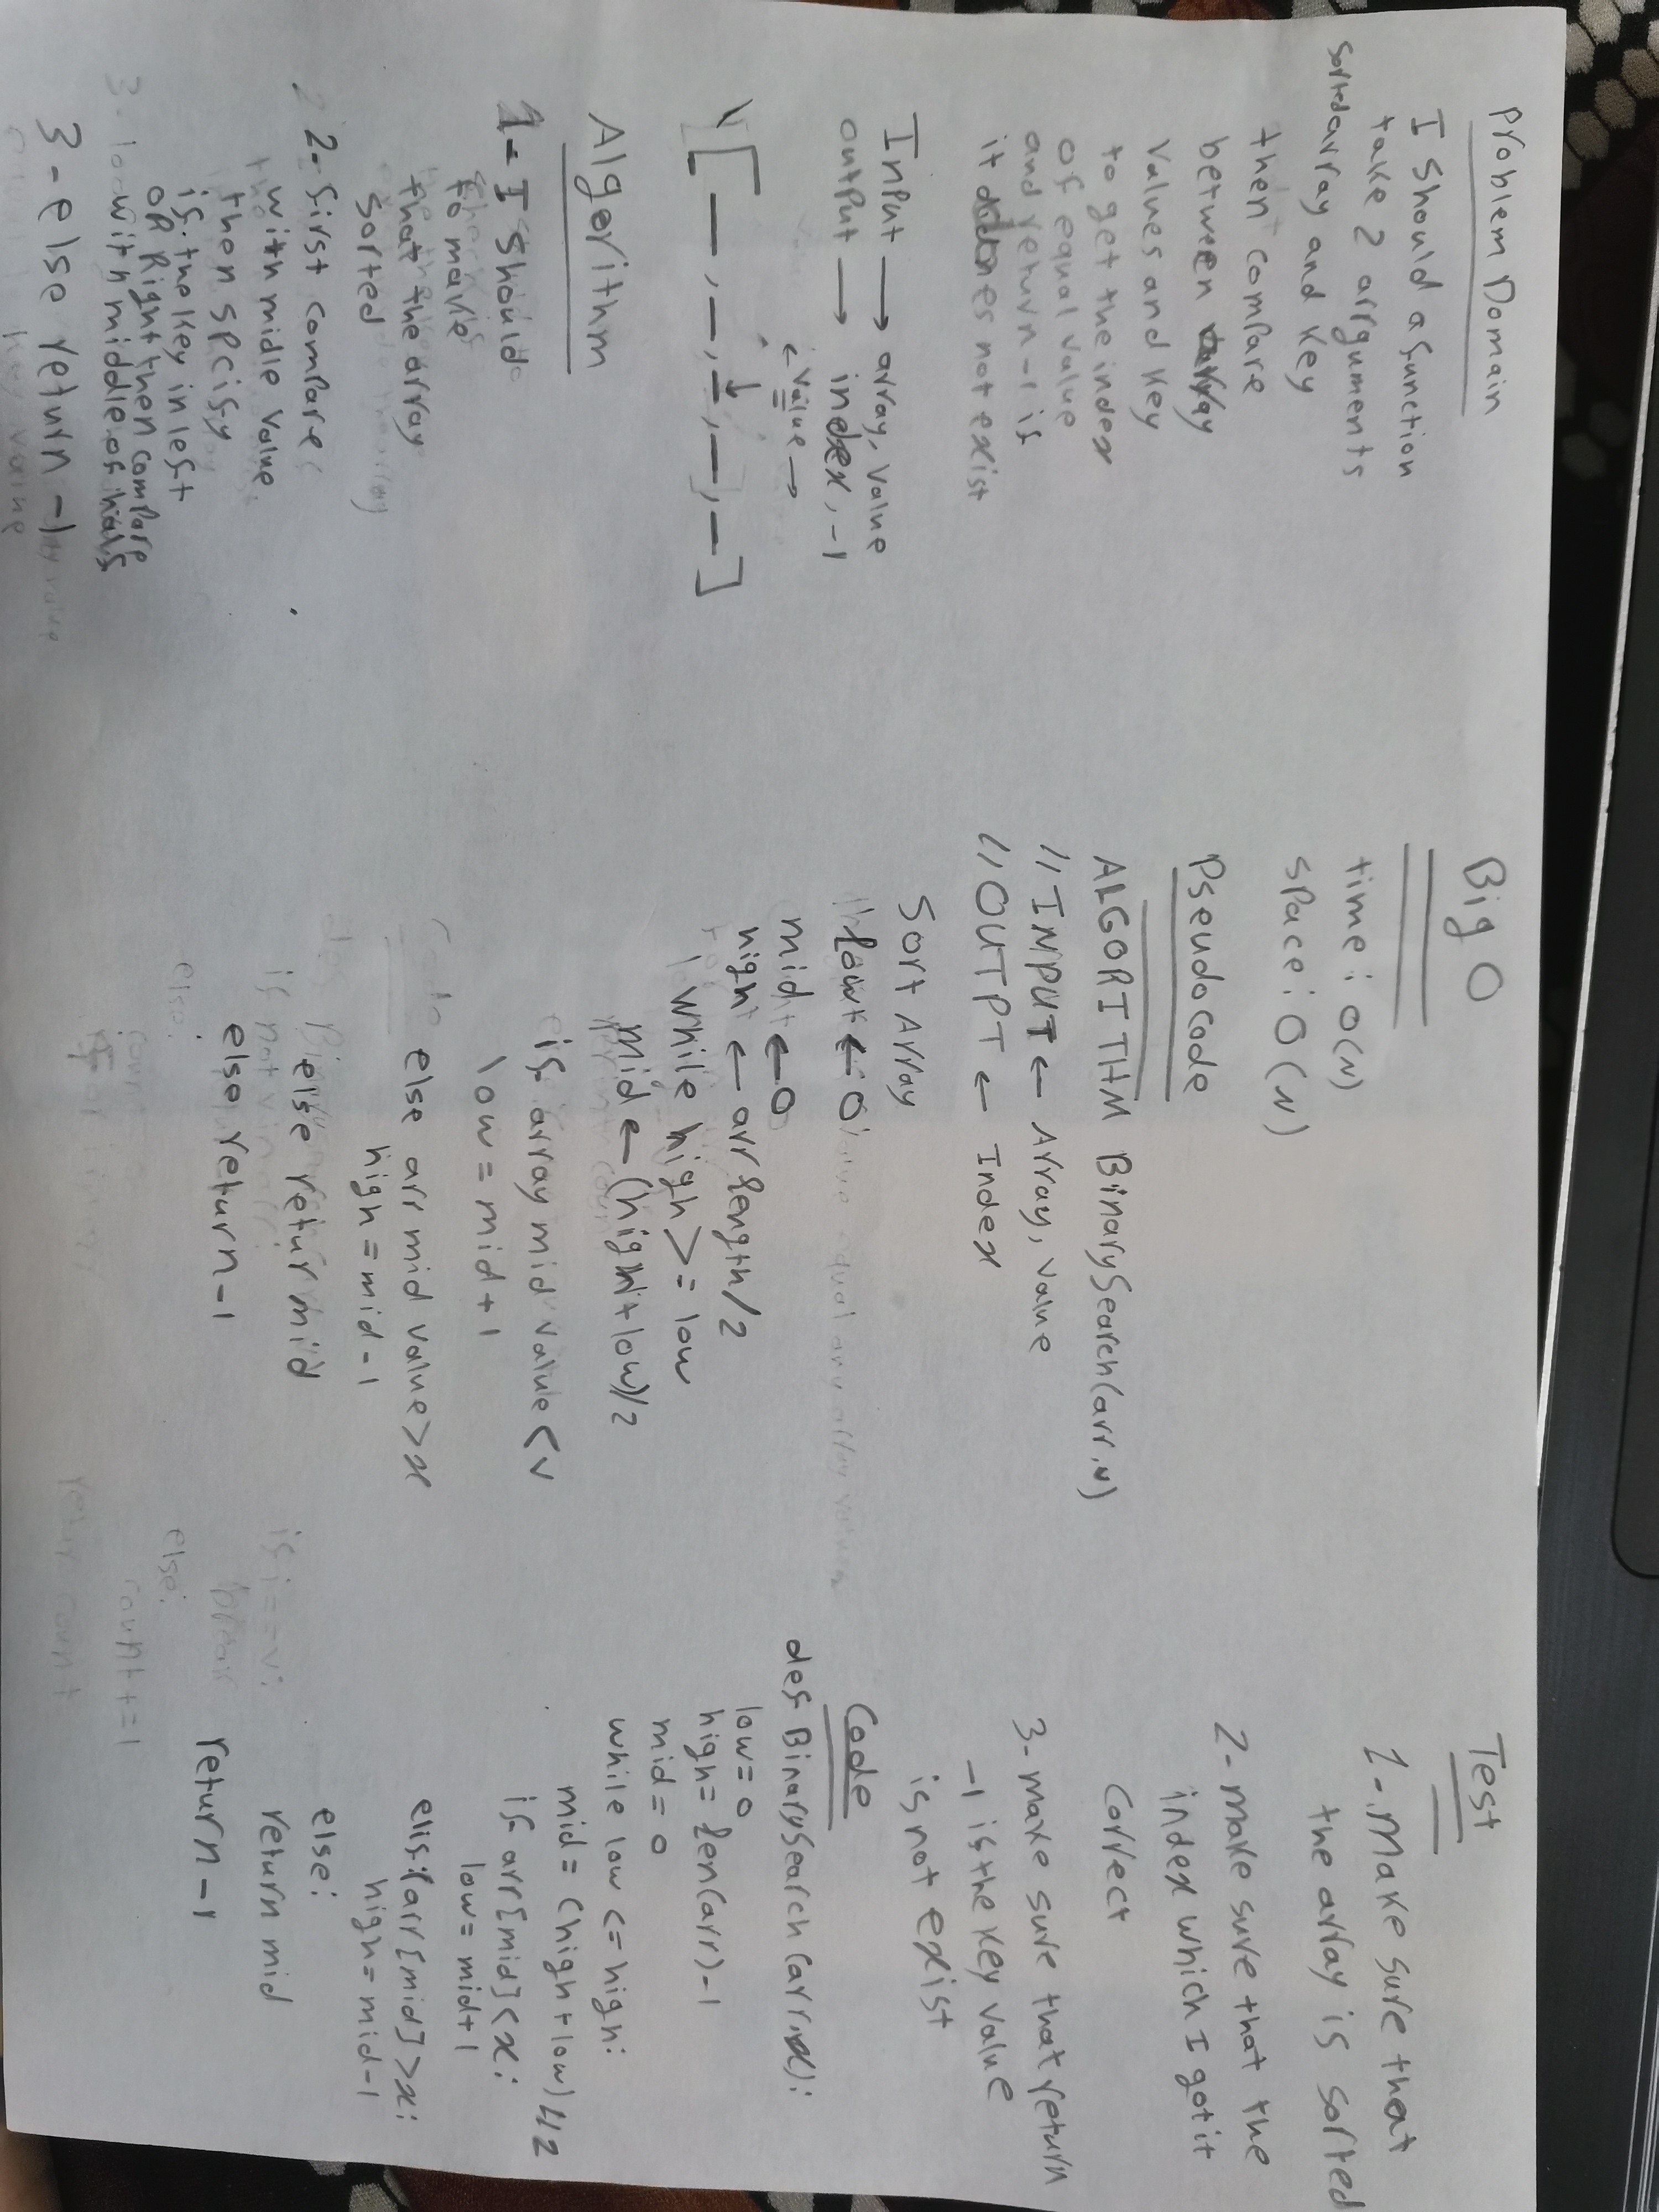 Problem Domain
I should a function
take 2 arrguments
sortedarray and key
then compare
between
values and key
to get the index
of equal value
and return -1 if
it does not exist
Input → array, value
output → index, -1
← value →
[ — , — , — , — , — ]
Algorithm
1- I should
to make
that the array
sorted
2- first compare
with midle value
then spcify
if the key in left
or Right then compare
with middle of half
3- else return -1
Big O
time: O(N)
space: O(N)
Pseudo code
ALGORITHM BinarySearch(arr,v)
// INPUT ← Array, value
// OUTPT ← Index
Sort Array
low ← 0
mid ← 0
high ← arr length/2
while high >= low
mid ← (high+low)/2
if array mid value < v
low = mid + 1
else arr mid value > x
high = mid - 1
else retur mid
else return -1
Test
1- make sure that
the array is sorted
2- make sure that the
index which I got it
correct
3- make sure that return
-1 if the key value
is not exist
Code
def BinarySearch(arr,x):
low = 0
high = len(arr)-1
mid = 0
while low <= high:
mid = (high + low)//2
if arr[mid] < x:
low = mid+1
elif arr[mid] > x:
high = mid-1
else:
return mid
return -1